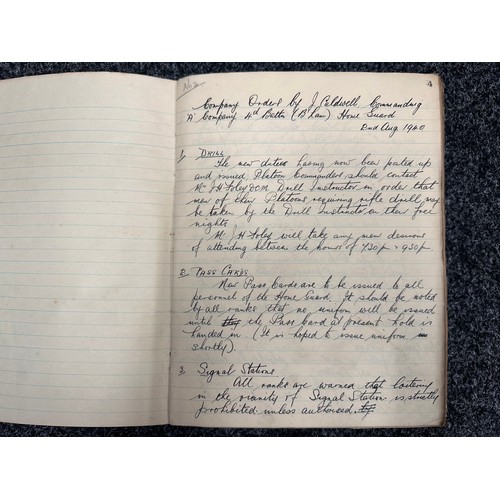 No 2
4
Company Orders by J Caldwell, Commanding
"A" Company 4th Battn (B'ham) Home Guard
2nd Aug 1940
1/ DRILL
The new duties having now been posted up
and issued, Platoon Commanders should contact
Mr J H Foley DCM Drill Instructor in order that
men of their Platoons requiring rifle drill may
be taken by the Drill Instructor on their free
nights.
Mr J.H. Foley will take any men desirous
of attending between the hours of 7.30p - 9.30p
2 PASS CARDS
New Pass Cards are to be issued to all
personnel of the Home Guard. It should be noted
by all ranks that no uniform will be issued
until the Pass Card at present held is
handed in. (It is hoped to issue uniform
shortly).
3 Signal Stations
All ranks are warned that loitering
in the vicinity of Signal Station is strictly
prohibited unless authorised.